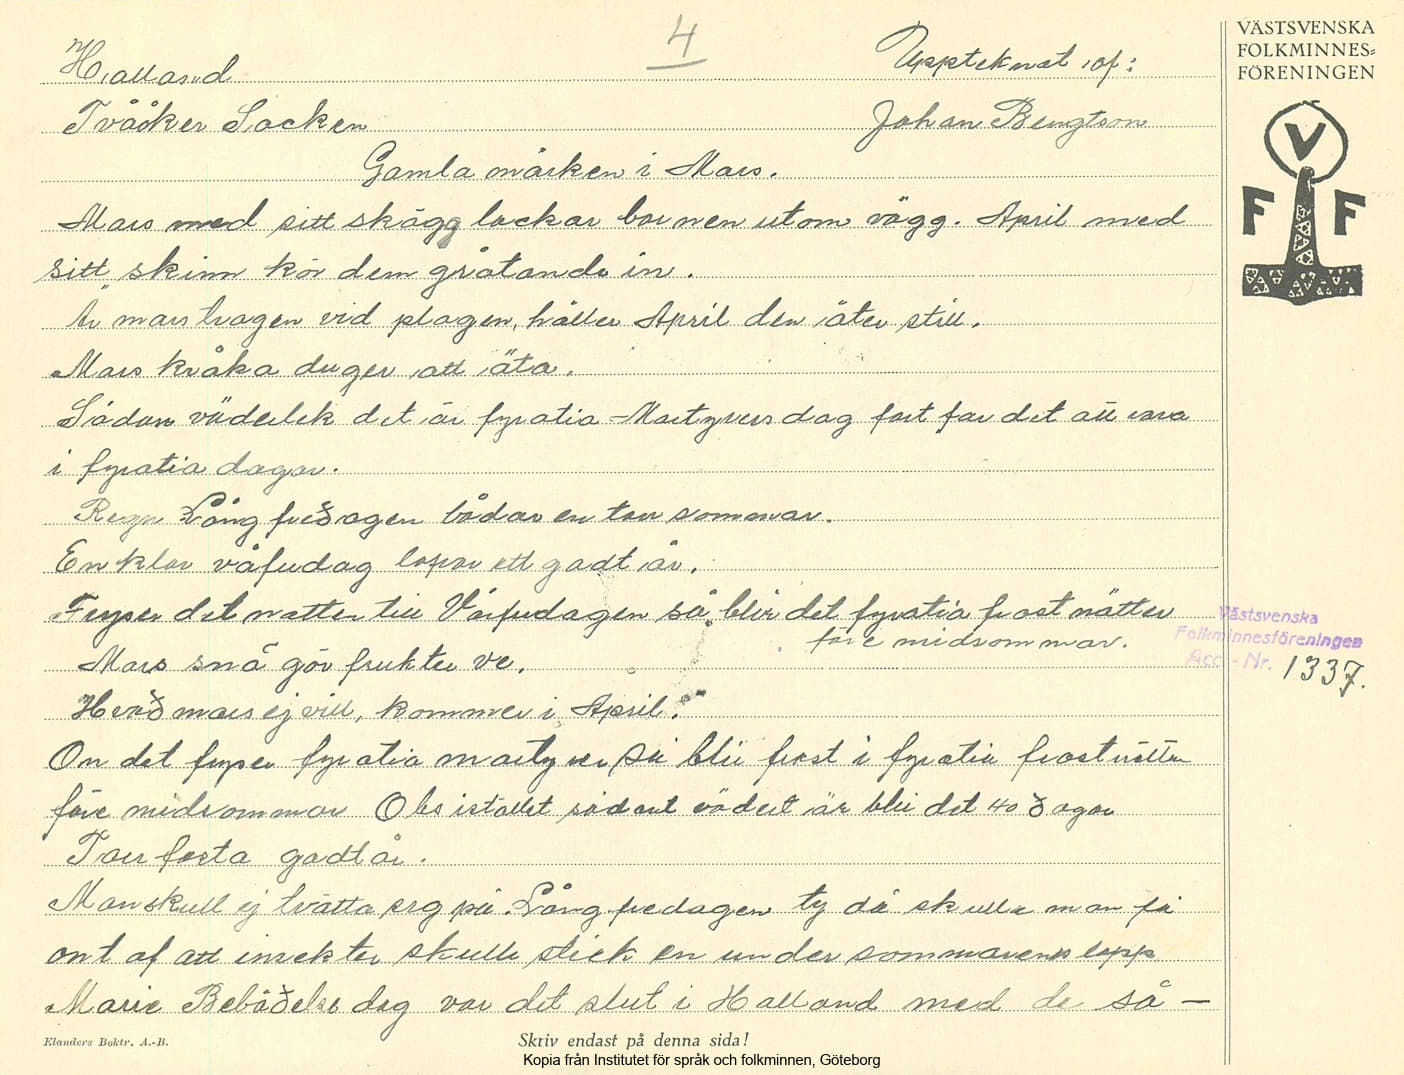 4
Halland
Uppteknat af:
Tvååker Socken
Johan Bengtson
Gamla märken i Mars.
Mars med sitt skägg lockar barnen utom vägg. April med
sitt skinn kör dem gråtande in.
Är mars tragen vid plagen, håller April den åter still.
Mars kråka duger att äta.
Sådan väderlek det är fyratio-Martyrers dag fort far det att vara
i fyratio dagar.
Regn Långfredagen bådar en torr sommar.
En klar vårfrudag lofvar ett godt år.
Fryser det natten till Vårfrudagen så blir det fyratio frost nätter
före midsommar.
Mars snö gör frukter ve.
Hvad mars ej vill, kommer i April."
Om det fryser fyratio martyrer så blir frost i fyratio frostnätter
före midsommar Obs istället sådant vädert är blir det 40 dagar
Torr fasta godt år.
Man skull ej tvätta sig på Långfredagen ty då skulle man få
ont af att insekter skulle stick en under sommarens lopp
Marie Bebådelse dag var det slut i Halland med de så —
VÄSTSVENSKA
FOLKMINNES-
FÖRENINGEN
V
F F
Västsvenska
Folkminnesföreningen
Acc.-Nr. 1337.
Elanders Boktr. A.-B.
Skriv endast på denna sida!
Kopia från Institutet för språk och folkminnen, Göteborg